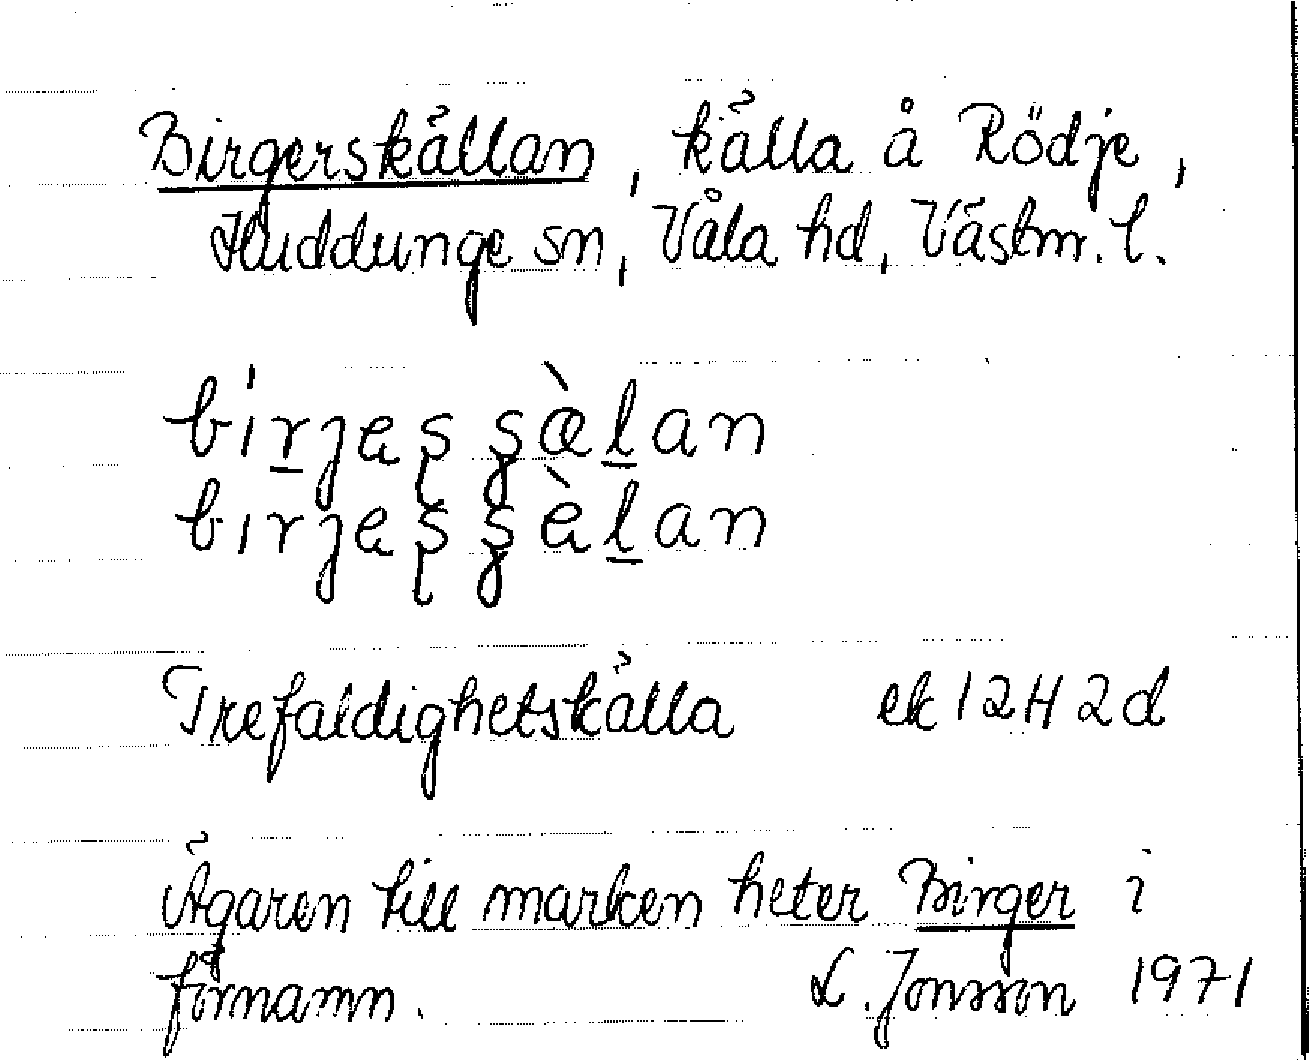 Birgerskällan, källa å Rödje,
Huddunge sn, Våla hd, Västm. l.
Trefaldighetskälla ek 12H 2d
Ägaren till marken heter Birger i
förnamn. L. Jonsson 1971